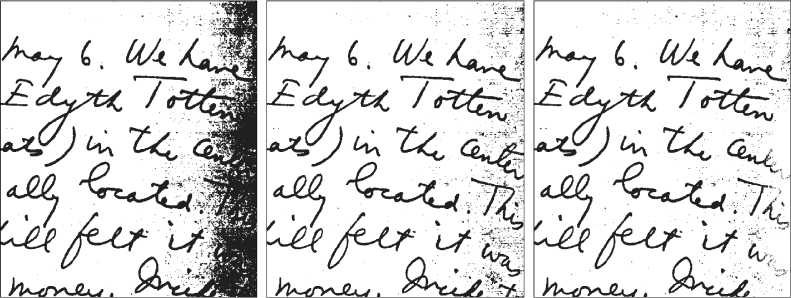 May 6. We have
Edyth Totten
ats) in the cente
ally located. Thi
ill felt it
money.
May 6. We have
Edyth Totten
ats) in the center
ally located. This
ill felt it was
money.
May 6. We have
Edyth Totten
ats) in the center
ally located. This
ill felt it was
money.